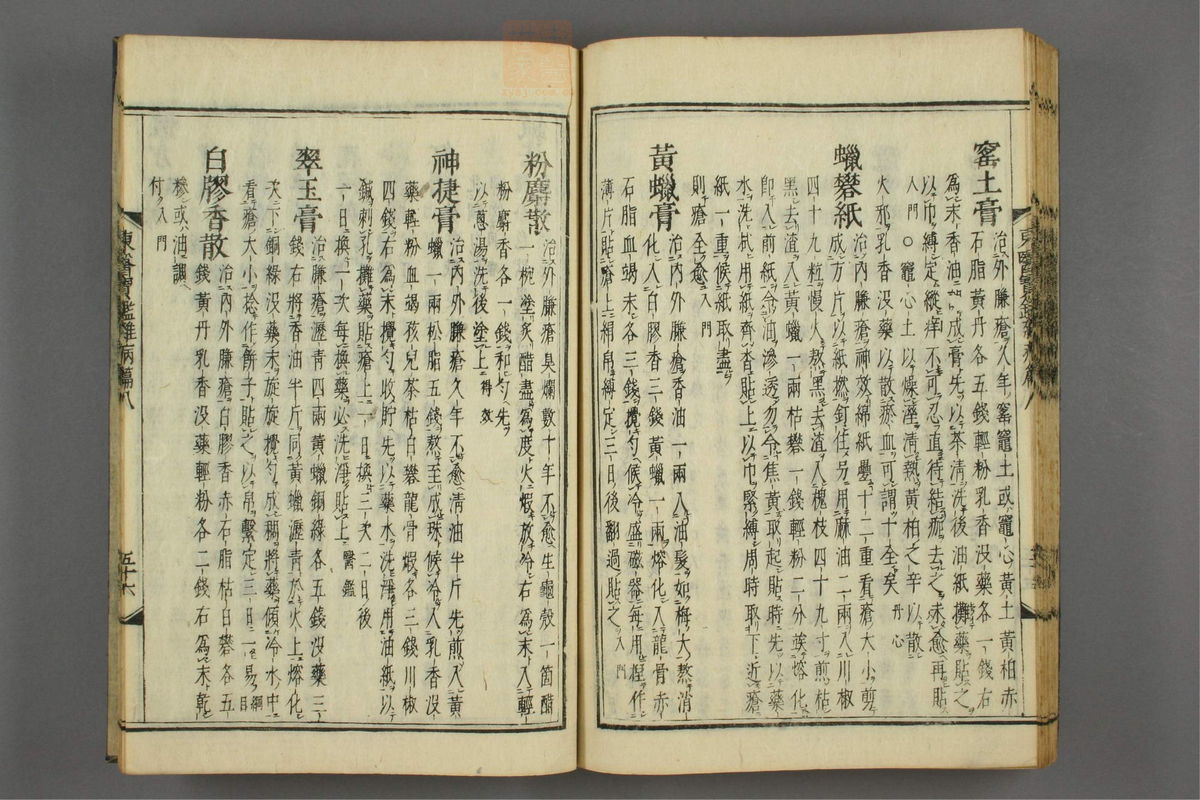 窰土膏 治外臁瘡久年窰竈土或竈心黃土黃柏赤
石脂黃丹各五錢輕粉乳香没藥各一錢右
為末香油調成膏先以茶清洗後油紙攤藥貼之
以巾縛定縱痒不可忍直待結痂去之未愈再貼
入門○竈心土以燥濕清熱黃柏之辛以散
火邪乳香没藥以散瘀血可謂十全矣丹心
蠟礬紙 治內外臁瘡神效綿紙疊十二重看瘡大小剪
成方片以紙撚釘住另用麻油二兩入川椒
四十九粒慢火熬黑去渣入槐枝四十九寸煎枯
黑去渣入黃蠟一兩枯礬一錢輕粉二分候熔化
即入前紙令油滲透勿令焦黃取起貼時先以藥
水洗拭用紙齊沓貼上以巾緊縛周時取下近瘡
紙一重候紙取盡
則瘡全愈入門
黃蠟膏 治內外臁瘡香油一兩入油髮如梅大熬消
化入白膠香三錢黃蠟一兩熔化入龍骨赤
石脂血竭末各三錢攪勻候冷盛磁器每用捏作
薄片貼瘡上綿帛縛定三日後翻過貼之入門
粉麝散 治外臁瘡臭爛數十年不愈生龜殼一箇醋
一椀塗炙醋盡為度火煅放冷右為末入輕
粉麝香各一錢和勻先
以葱湯洗後塗上得效
神捷膏 治內外臁瘡久年不愈清油半斤先煎入黃
蠟一兩松脂五錢熬至成珠候冷入乳香没
藥輕粉血竭孩兒茶枯白礬龍骨煅各三錢川椒
四錢右為末攪勻收貯先以藥水洗淨用油紙以
鍼刺孔攤藥貼瘡上一日換三次二日後
一日換一次每換藥必洗淨貼上醫鑑
翠玉膏 治臁瘡瀝青四兩黃蠟銅綠各五錢没藥三
錢右將香油半斤同黃蠟瀝青於火上熔化
次下銅綠没藥末旋旋攪勻成稠將藥傾冷水中
看瘡大小捻作餠子貼之以帛緊定三日一易綱目
白膠香散 治內外臁瘡白膠香赤石脂枯白礬各五
錢黃丹乳香没藥輕粉各二錢右為末乾
糝或油調
付入門
東醫寶鑑雜病篇八
五十六